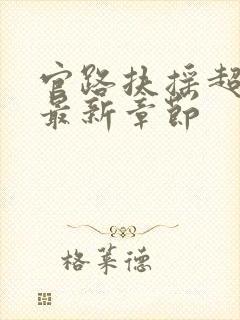 官路扶摇超
最新章节
格莱德